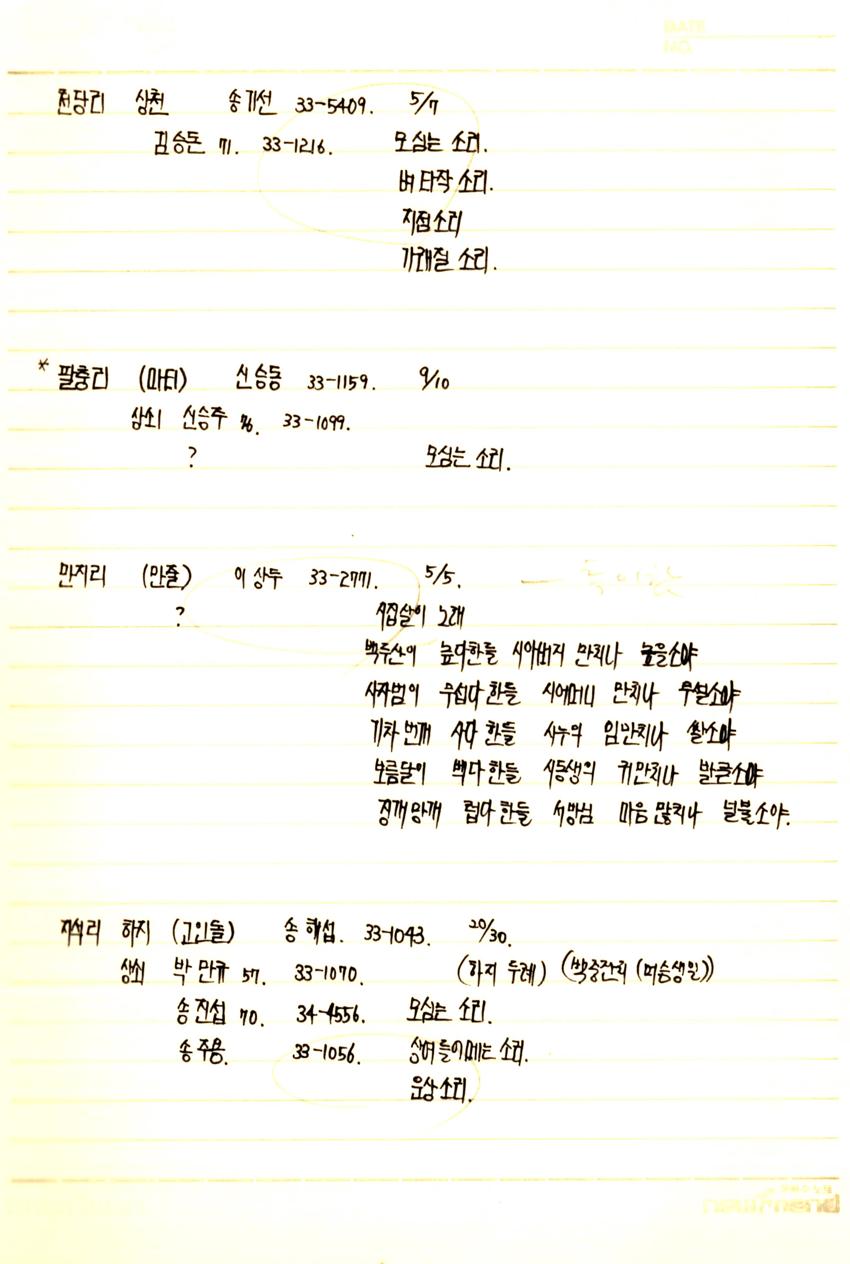 천당리 삼천 송기선 33-5409. 5/7
김승돈 71. 33-1216. 모심는 소리.
벼 타작 소리.
지점소리
가래질 소리.
* 팔충리 (마티) 신승동 33-1159. 9/10
상쇠 신승주 76. 33-1099.
? 모심는 소리.
만지리 (만줄) 이상두 33-2771. 5/5.
? 시집살이 노래
백두산이 높다한들 시아버지 만치나 높을소야
사자범이 무섭다 한들 시어머니 만치나 무설소야
기차 번개 사다 한들 시누의 입만치나 쌀소야
보름달이 백다 한들 시동생의 키만치나 발큰소야
징개망개 럽다 한들 서방님 마음 많치나 널불소야.
지석리 하지 (고인돌) 송해섭. 33-1043. 20/30.
상쇠 박만규 57. 33-1070. (하지 두레) (백중잔치 (머슴생일))
송진섭 70. 34-4556. 모심는 소리.
송주용. 33-1056. 상여 들이메는 소리.
운상소리.